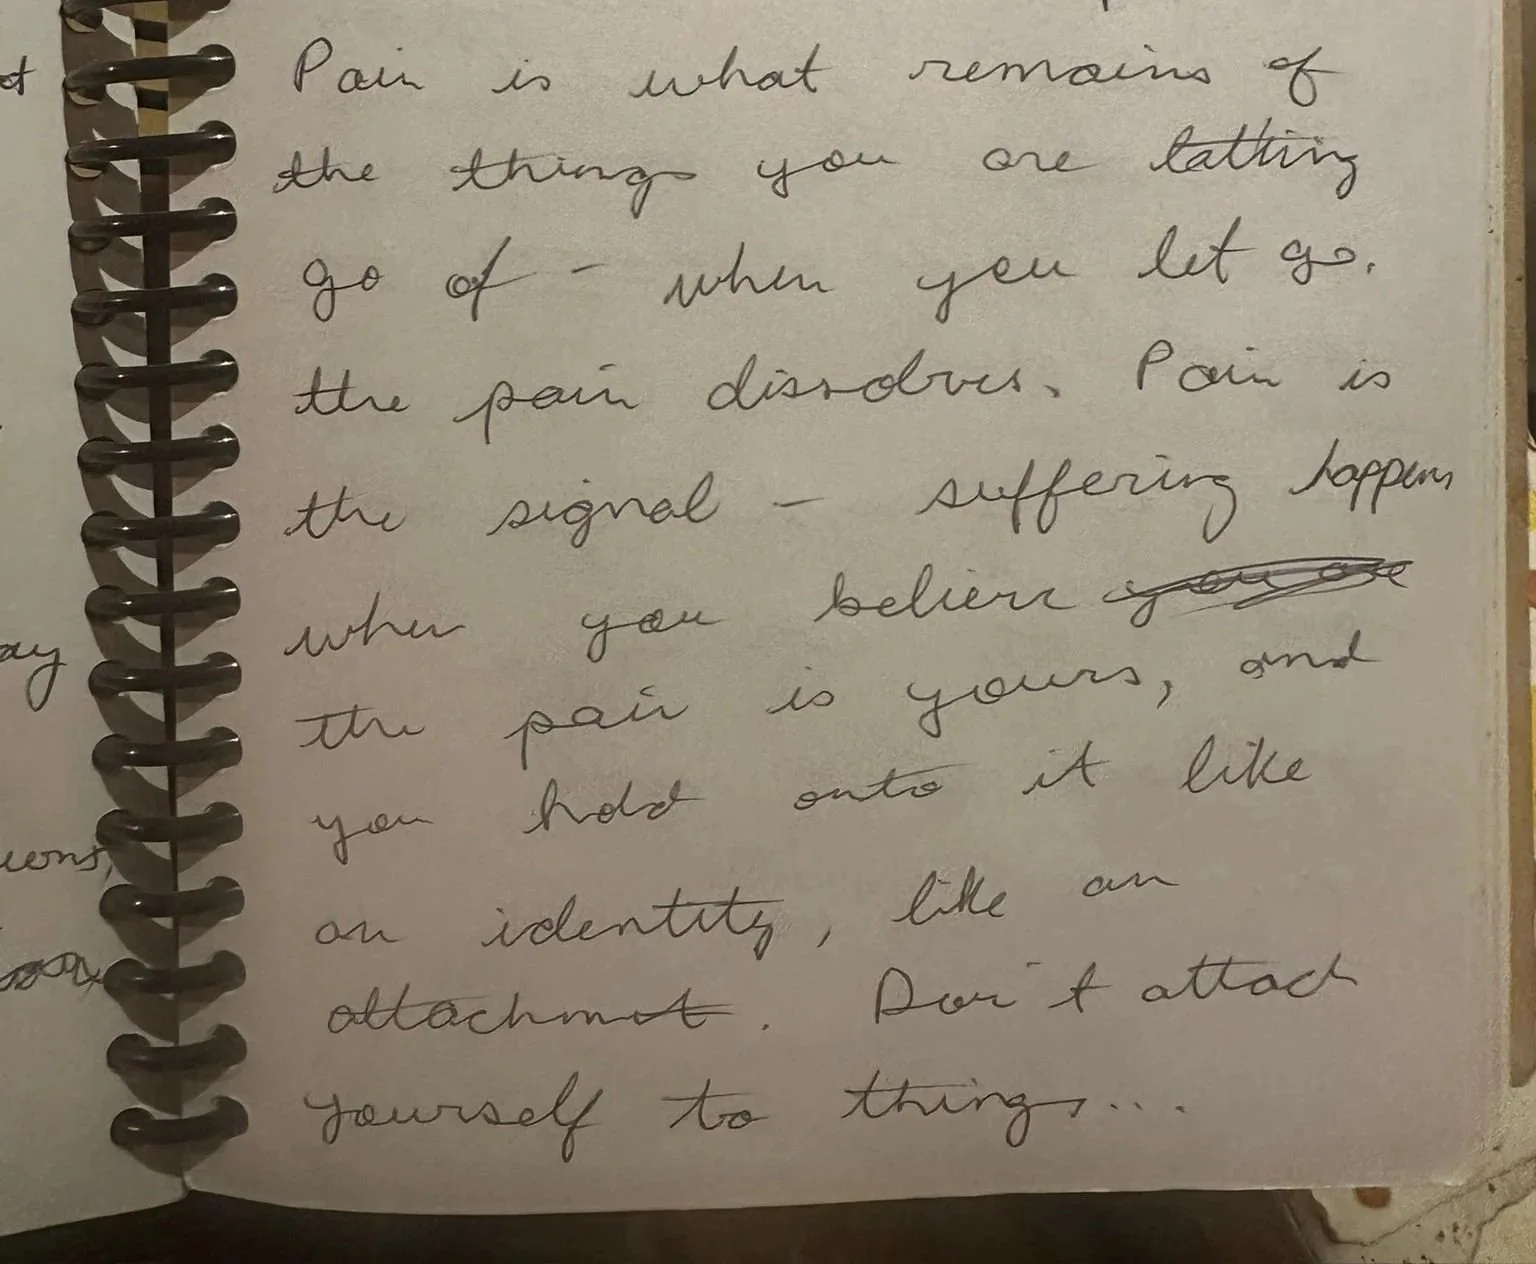 Pain is what remains of
the things you are latting
go of - when you let go.
the pain dissolves. Pain is
the signal - suffering happens
when you believe
the pain is yours, and
you hold onto it like
an identity, like an
attachmet. Don't attach
yourself to things...
ay